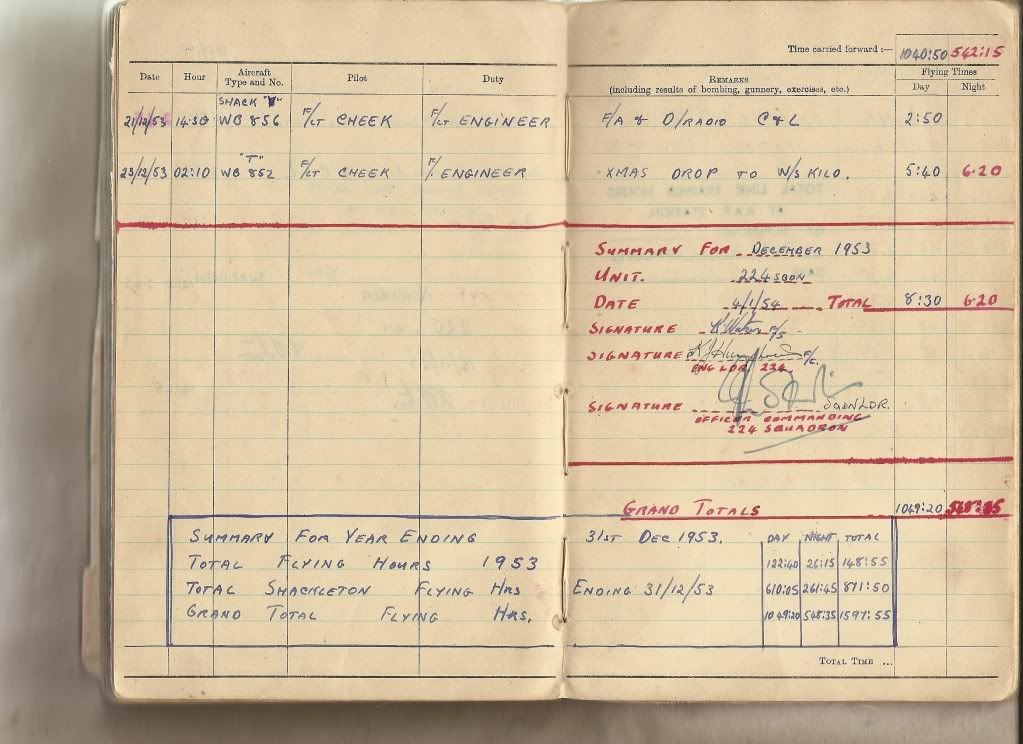 Time carried forward :— 1040:50 542:15
Date Hour Aircraft Type and No. Pilot Duty REMARKS (including results of bombing, gunnery, exercises, etc.) Flying Times Day Night
SHACK "V"
21/12/53 14.50 WB 856 F/LT CHEEK F/LT ENGINEER F/A & D/RADIO C&L 2:50
"T"
23/12/53 02:10 WB 852 F/LT CHEEK F/. ENGINEER XMAS DROP TO W/S KILO. 5:40 6.20
SUMMARY FOR DECEMBER 1953
UNIT. 224 SQDN
DATE 4/1/54 TOTAL 8:30 6.20
SIGNATURE F/S
SIGNATURE
ENG LDR. 224
SIGNATURE SQDN LDR.
OFFICER COMMANDING
224 SQUADRON
GRAND TOTALS 1049:20
SUMMARY FOR YEAR ENDING 31ST DEC 1953. DAY NIGHT TOTAL
TOTAL FLYING HOURS 1953 122:40 26:15 148:55
TOTAL SHACKLETON FLYING HRS ENDING 31/12/53 610:05 261:45 871:50
GRAND TOTAL FLYING HRS. 1049:20 548:35 1597:55
TOTAL TIME ...